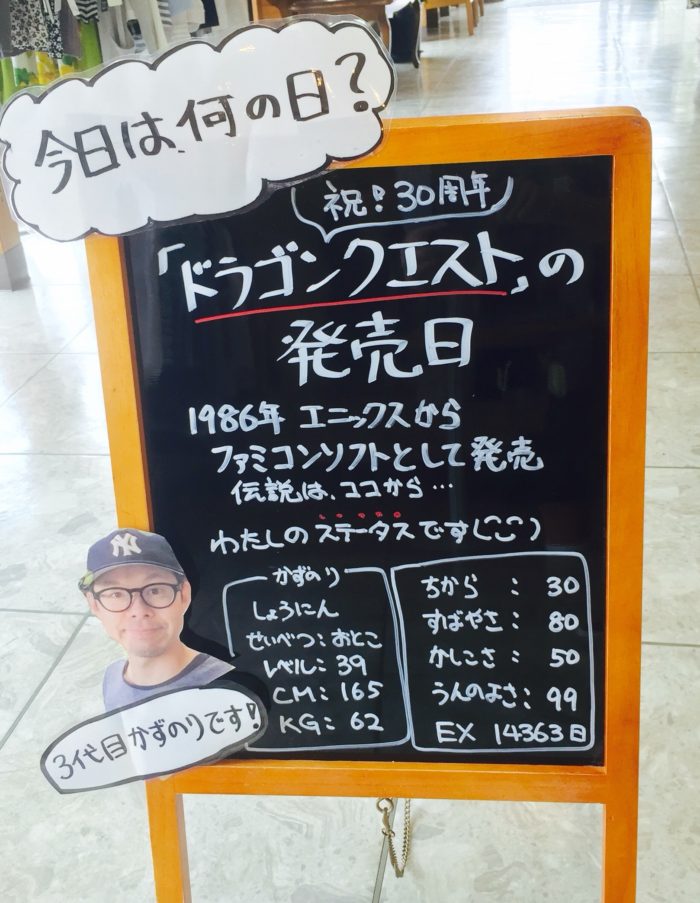 今日は、何の日?
祝!30周年
「ドラゴンクエスト」の
発売日
1986年 エニックスから
ファミコンソフトとして発売
伝説は、ココから…
わたしのステータスです(^^)
かずのり
しょうにん
せいべつ:おとこ
レベル:39
CM:165
KG:62
ちから:30
すばやさ:80
かしこさ:50
うんのよさ:99
EX 14363日
NY
3代目かずのりです!